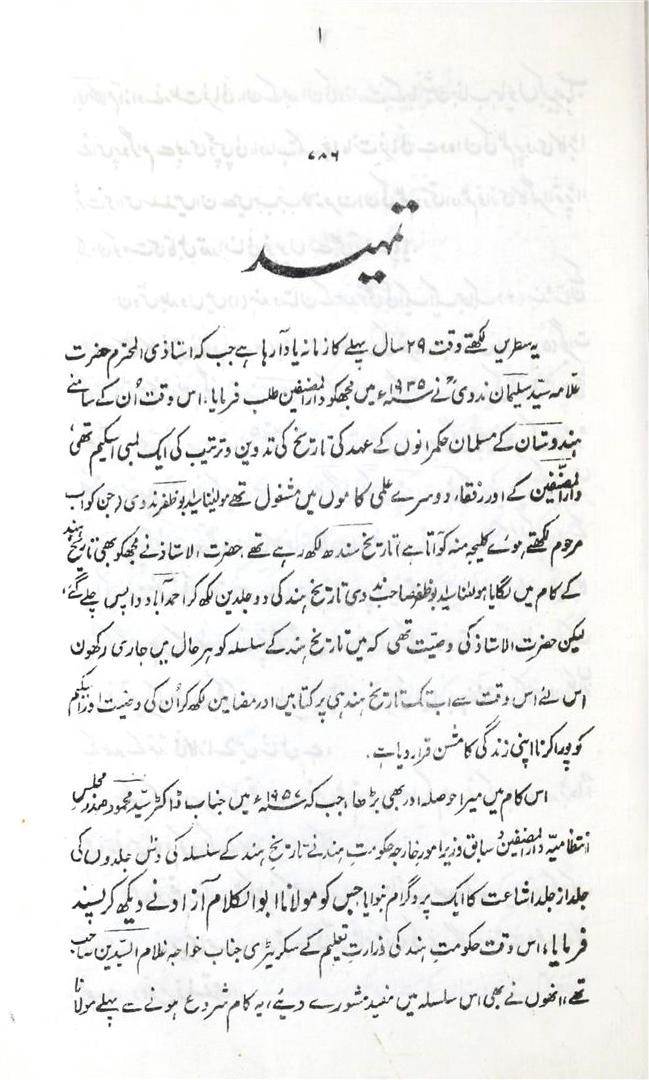 ۱
۷۸۶
تمہید
یہ سطریں لکھتے وقت ۲۹ سال پہلے کا زمانہ یاد آرہا ہے جب کہ استاذی المحترم حضرت
علامہ سید سلیمان ندویؒ نے ۱۹۳۵ء میں مجھکو دارالمصنفین طلب فرمایا، اس وقت اُن کے سامنے
ہندوستان کے مسلمان حکمرانوں کے عہد کی تاریخ کی تدوین و ترتیب کی ایک لمبی اسکیم تھی،
دارالمصنفین کے اور رفقاء دوسرے علمی کاموں میں مشغول تھے مولٰنا سید ابو ظفر ندوی (جن کو اب
مرحوم لکھتے ہوئے کلیجہ منہ کو آتا ہے) تاریخ سندھ لکھ رہے تھے، حضرت الاستاذ نے مجھکو بھی تاریخ ہند
کے کام میں لگایا مولٰنا سید ابو ظفر صاحب ندوی تاریخ ہند کی دو جلدیں لکھ کر احمد آباد واپس چلے گئے،
لیکن حضرت الاستاذ کی وصیت تھی کہ میں تاریخ ہند کے سلسلہ کو ہر حال میں جاری رکھوں
اس لئے اس وقت سے اب تک تاریخ ہند ہی پر کتابیں اور مضامین لکھ کر اُن کی وصیت اور اسکیم
کو پورا کرنا اپنی زندگی کا مشن قرار دیا ہے.
اس کام میں میرا حوصلہ اور بھی بڑھا، جب کہ ۱۹۵۷ء میں جناب ڈاکٹر سید محمود صدر مجلس
انتظامیہ دارالمصنفین و سابق وزیر امور خارجہ حکومتِ ہند نے تاریخِ ہند کے سلسلہ کی دس جلدوں کی
جلد از جلد اشاعت کا ایک پروگرام بنوایا جس کو مولانا ابوالکلام آزاد نے دیکھ کر پسند
فرمایا، اس وقت حکومتِ ہند کی وزارتِ تعلیم کے سکریٹری جناب خواجہ غلام السیدین صاحب
تھے، انھوں نے بھی اس سلسلہ میں مفید مشورے دیئے، یہ کام شروع ہونے سے پہلے مولانا